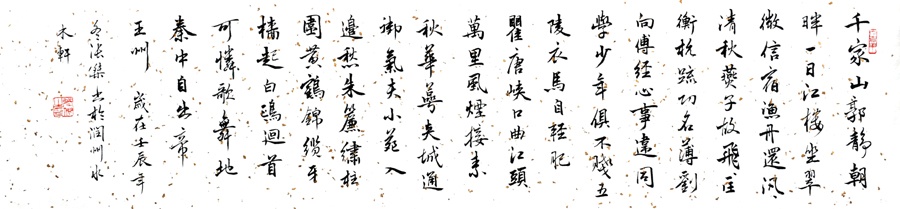 千家山郭静朝
晖一日江楼坐翠
微信宿漁舟還汎〻
清秋燕子故飛匡
衡抗疏功名薄劉
向傅經心事違同
學少年俱不賤五
陵衣馬自輕肥
瞿唐峡口曲江頭
萬里風煙接素
秋華萼夹城通
御氣芙小苑入
邊愁朱簾繡柱
圍黄鶴錦纜牙
檣起白鷗迴首
可憐歌舞地
秦中自古帝
王州 歲在壬辰年
冬法集書於潤州水
木軒